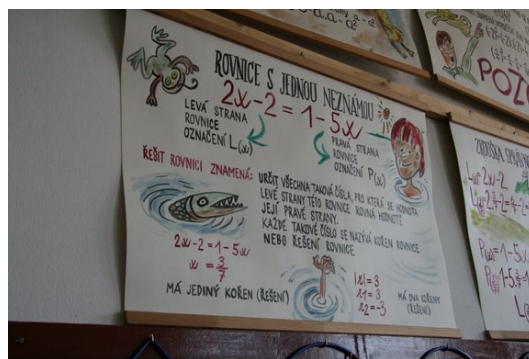 ROVNICE S JEDNOU NEZNÁMOU
2x-2 = 1-5x
LEVÁ STRANA
ROVNICE
OZNAČENÍ L(x)
PRAVÁ STRANA
ROVNICE
OZNAČENÍ P(x)
ŘEŠIT ROVNICI ZNAMENÁ:
URČIT VŠECHNA TAKOVÁ ČÍSLA, PRO KTERÁ SE HODNOTA
LEVÉ STRANY TÉTO ROVNICE ROVNÁ HODNOTĚ
JEJÍ PRAVÉ STRANY.
KAŽDÉ TAKOVÉ ČÍSLO SE NAZÝVÁ KOŘEN ROVNICE
NEBO ŘEŠENÍ ROVNICE
2x-2 = 1-5x
x = 3/7
MÁ JEDINÝ KOŘEN (ŘEŠENÍ)
|x| = 3
x1 = 3
x2 = -3
MÁ DVA KOŘENY
(ŘEŠENÍ)
POZO
ZKOUŠKA